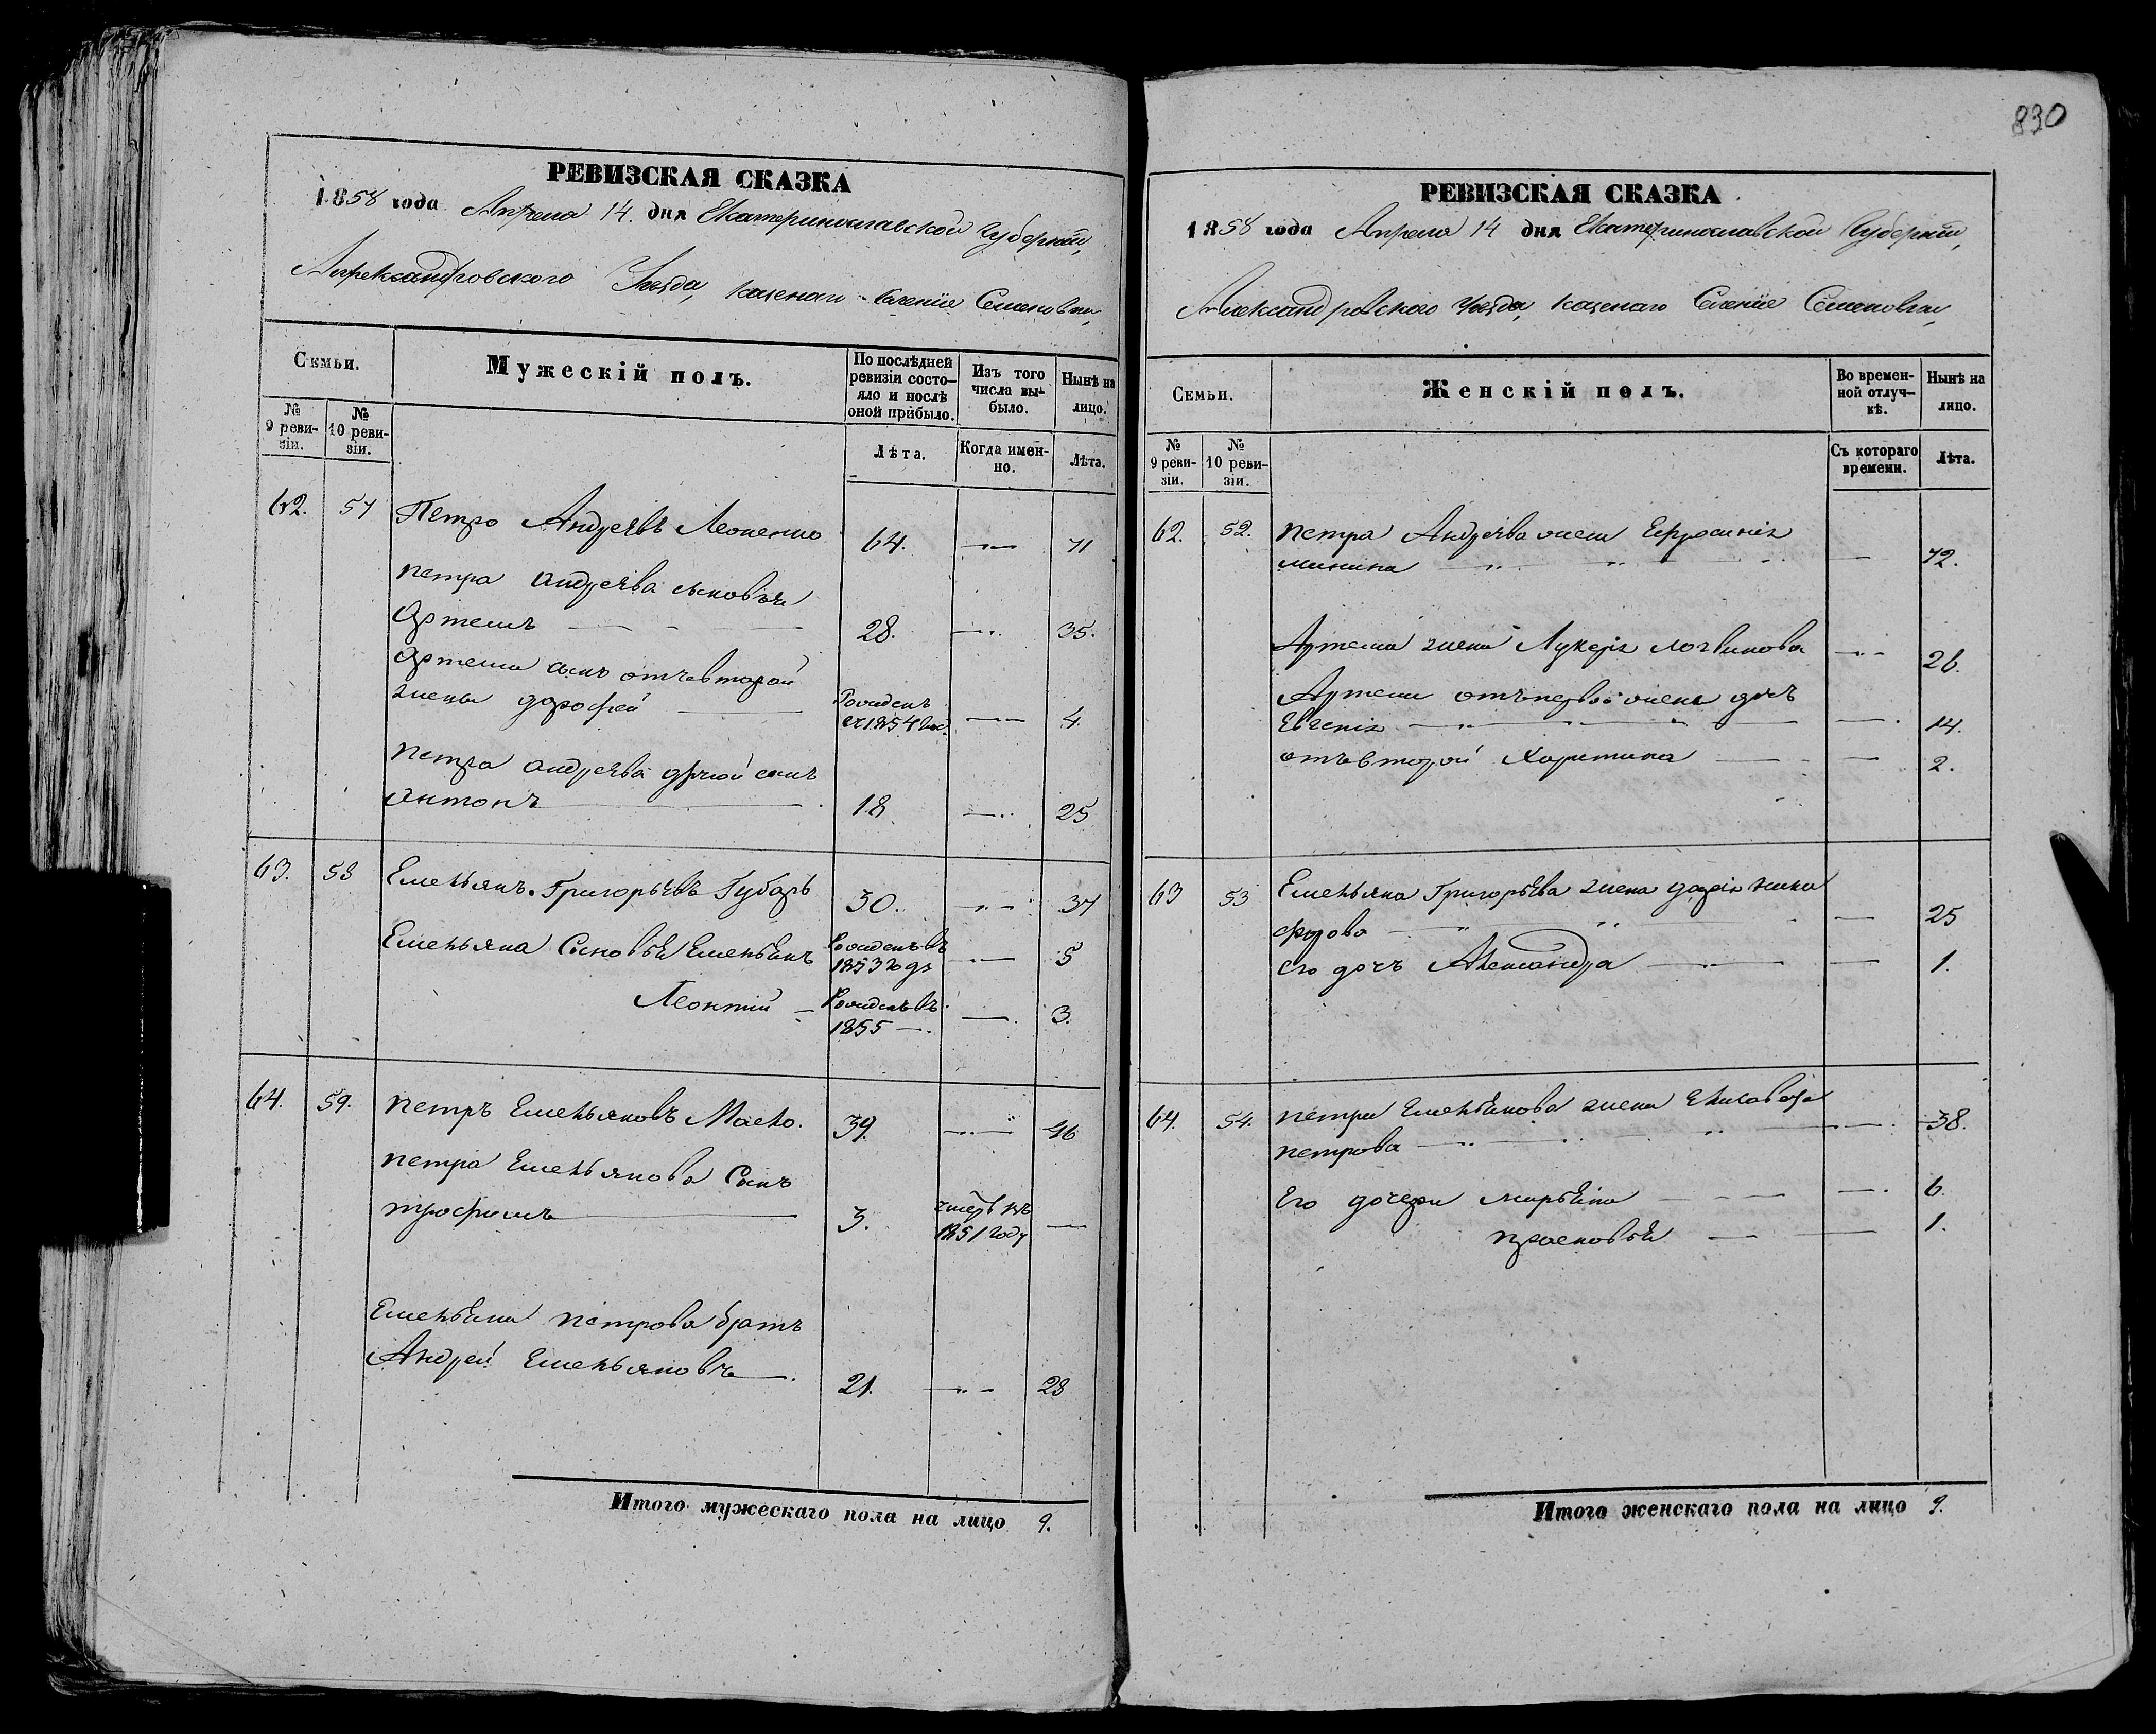 830
РЕВИЗСКАЯ СКАЗКА
1858 года Апреля 14. дня Екатеринославской Губерніи,
Александровского Уезда, казенаго Селеніе Семеновки,
Семьи.
Мужескій полъ.
По послѣдней ревизіи состояло и послѣ оной прибыло.
Изъ того числа выбыло.
Нынѣ на лицо.
№ 9 ревизіи.
№ 10 ревизіи.
Лѣта.
Когда именно.
Лѣта.
62. 57 Петро Андреевъ Леоненко 64. — 71
Петра Андреева сыновья
Артемъ — 28. — 35.
Артема сынъ отъ второй
жены Дорофей — Рожденъ 1854 — 4.
Петра Андреева другой сынъ
Антонъ — 18 — 25
63. 58 Емельянъ Григорьевъ Губарь 30. — 37
Емельяна Сыновья Емельянъ Рожденъ въ 1853 годъ — 5
Леонтій — Рожденъ въ 1855 — 3.
64. 59. Петръ Емельяновъ 39. — 46
Петра Емельянова Сынъ
Трофимъ — 3. умеръ въ 1851 году —
Емельяна Петрова братъ
Андрей Емельяновъ — 21. — 28
Итого мужескаго пола на лицо 9.
РЕВИЗСКАЯ СКАЗКА
1858 года Апреля 14 дня Екатеринославской Губерніи,
Александровского Уезда, казенаго Селеніе Семеновки,
Семьи.
Женскій полъ.
Во временной отлучкѣ.
Нынѣ на лицо.
№ 9 ревизіи.
№ 10 ревизіи.
Съ котораго времени.
Лѣта.
62. 52. Петра Андреева жена Ефросинія
Минина — — 72.
Артема жена Лукерія Логвинова — 26.
Артема отъ первой жены дочъ
Евгенія — — 14.
отъ второй Харитина — — 2.
63 53 Емельяна Григорьева жена Дарія Ники
форова — — 25
его дочъ Александра — — 1.
64. 54. Петра Емельянова жена Елисавета
Петрова — — 38.
Его дочери — — 6.
Прасковья — — 1.
Итого женскаго пола на лицо 9.